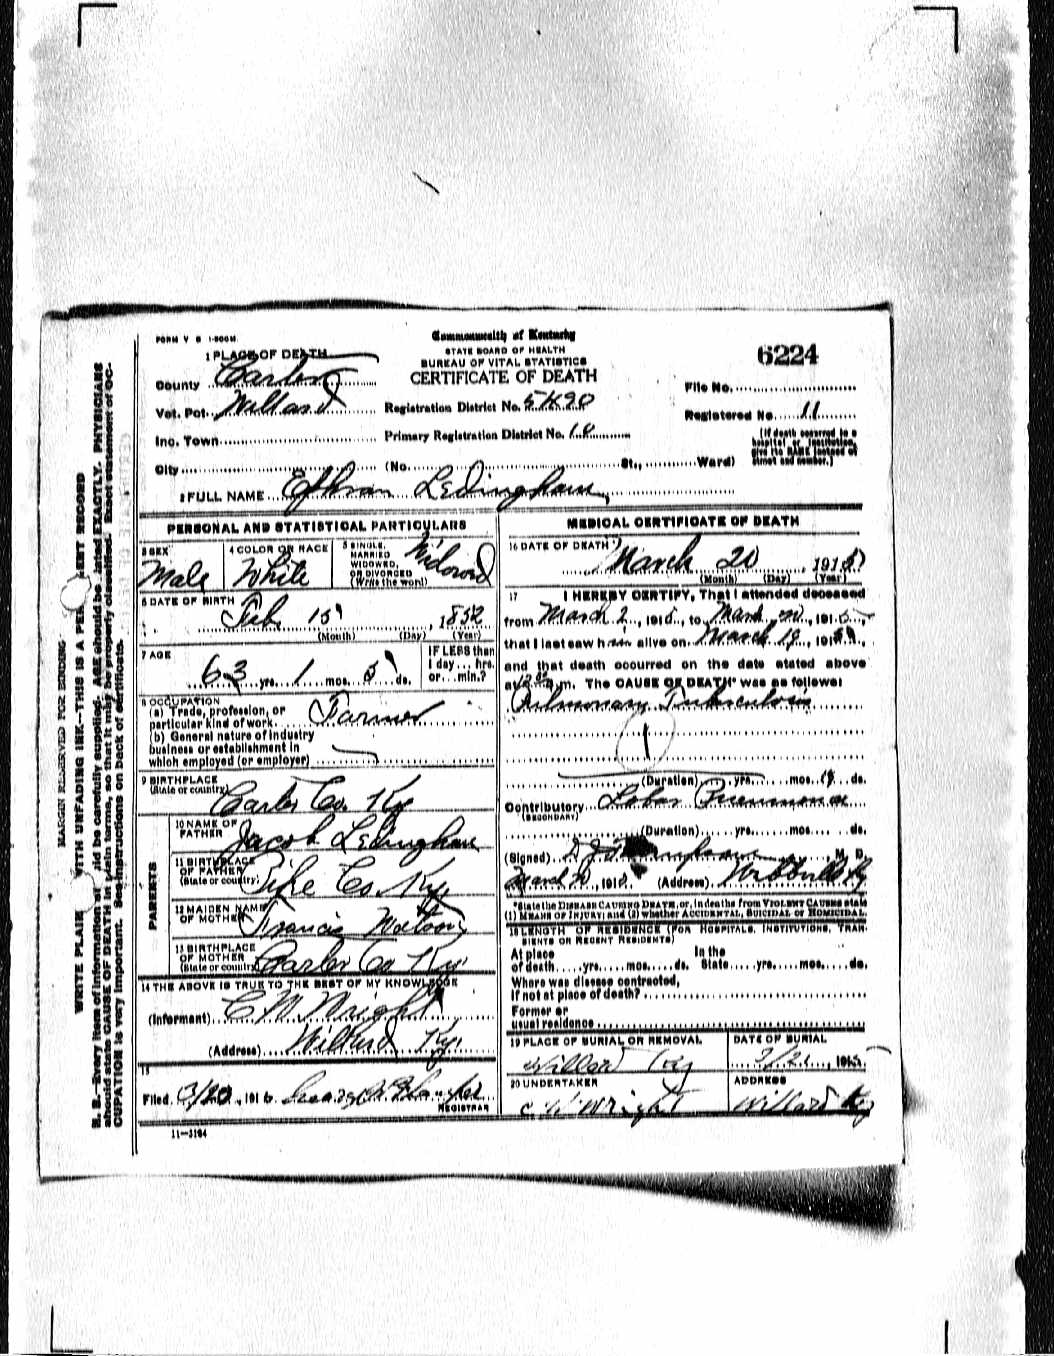 FORM V S 1-500M
Commonwealth of Kentucky
STATE BOARD OF HEALTH
BUREAU OF VITAL STATISTICS
CERTIFICATE OF DEATH
6224
1 PLACE OF DEATH
County Carter
Vot. Pct. Willard
Registration District No.
File No.
Registered No. 11
Inc. Town
Primary Registration District No. 10
(If death occurred in a hospital or institution, give its NAME instead of street and number.)
City (No. St., Ward)
2 FULL NAME Ephram Ledingham
PERSONAL AND STATISTICAL PARTICULARS
3 SEX
Male
4 COLOR OR RACE
White
5 SINGLE, MARRIED WIDOWED, OR DIVORCED (Write the word)
Widowed
6 DATE OF BIRTH
Feb 15, 1852
(Month) (Day) (Year)
7 AGE
63 yrs. 1 mos. 5 ds.
IF LESS than 1 day... hrs. or... min.?
8 OCCUPATION
(a) Trade, profession, or particular kind of work. Farmer
(b) General nature of industry
business or establishment in
which employed (or employer)
9 BIRTHPLACE
(State or country)
Carter Co. Ky
PARENTS
10 NAME OF FATHER Jacob Ledingham
11 BIRTHPLACE OF FATHER (State or country) Pike Co. Ky.
12 MAIDEN NAME OF MOTHER Francis Watson
13 BIRTHPLACE OF MOTHER (State or country) Carter Co Ky.
14 THE ABOVE IS TRUE TO THE BEST OF MY KNOWLEDGE
(Informant) C M Wright
(Address) Willard Ky.
15
Filed 3/20, 191
REGISTRAR
11-3184
MEDICAL CERTIFICATE OF DEATH
16 DATE OF DEATH
March 20, 1915
(Month) (Day) (Year)
17 I HEREBY CERTIFY, That I attended deceased
from March 2, 1915, to March 20, 1915,
that I last saw him alive on March 19, 1915,
and that death occurred on the date stated above
at m. The CAUSE OF DEATH* was as follows:
Pulmonary Tuberculosis
1
(Duration) yrs. mos. 18 ds.
Contributory Lobar Pneumonia
(SECONDARY)
(Duration) yrs. mos. ds.
(Signed) M. D.
March 20, 1915 (Address) Webbville Ky
*State the DISEASE CAUSING DEATH, or, in deaths from VIOLENT CAUSES state
(1) MEANS OF INJURY; and (2) whether ACCIDENTAL, SUICIDAL or HOMICIDAL.
18 LENGTH OF RESIDENCE (FOR HOSPITALS, INSTITUTIONS, TRANSIENTS OR RECENT RESIDENTS)
At place of death yrs. mos. ds. In the State yrs. mos. ds.
Where was disease contracted,
if not at place of death?
Former or
usual residence
19 PLACE OF BURIAL OR REMOVAL
Willard Ky
DATE OF BURIAL
3/21, 1915
20 UNDERTAKER
C W Wright
ADDRESS
Willard Ky
MARGIN RESERVED FOR BINDING
WRITE PLAIN WITH UNFADING INK—THIS IS A RECORD
N. B.—Every item of information should be carefully supplied. AGE should be stated EXACTLY. PHYSICIANS
should state CAUSE OF DEATH in plain terms, so that it may be properly classified. Exact statement of OC-
CUPATION is very important. See instructions on back of certificate.